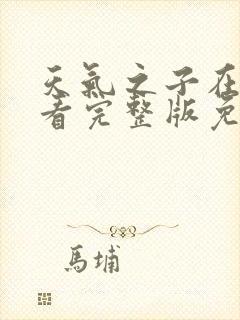 天氣之子在
看完整版免
馬埔